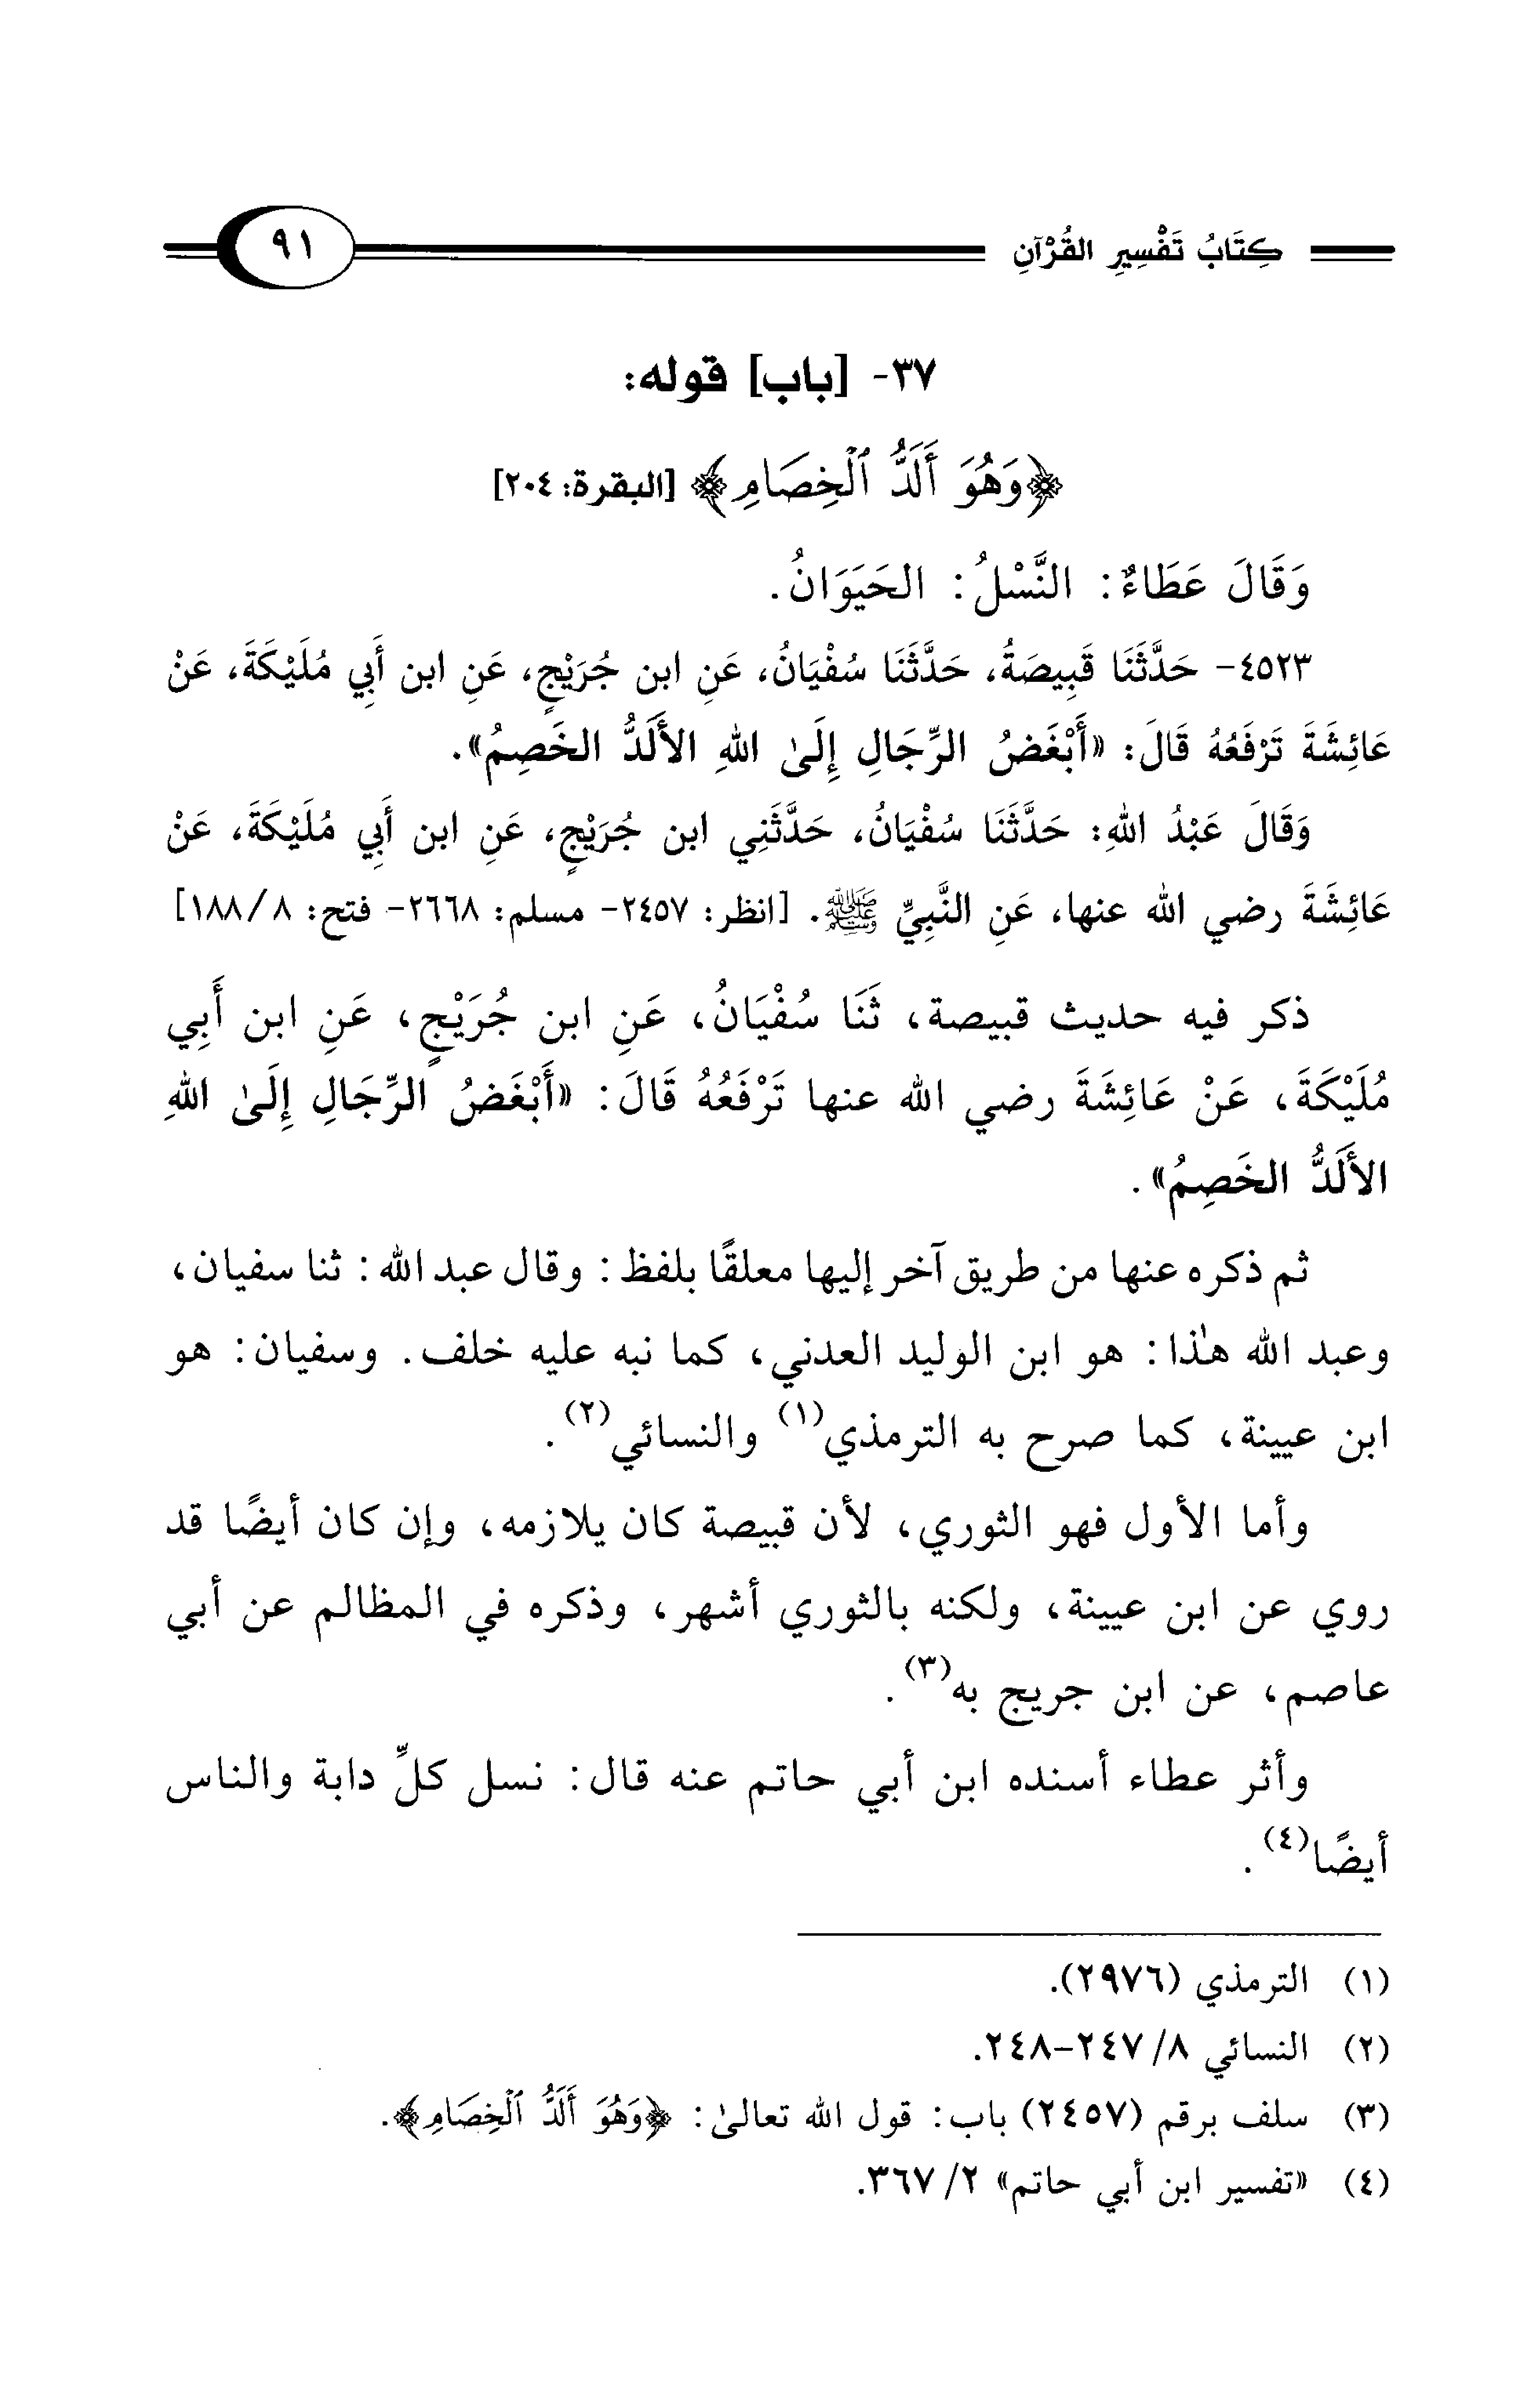 كِتَابُ تَفْسِيرِ القُرْآنِ ٩١
٣٧- [باب] قوله:
﴿وَهُوَ أَلَدُّ ٱلْخِصَامِ﴾ [البقرة: ٢٠٤]
وَقَالَ عَطَاءٌ: النَّسْلُ: الحَيَوَانُ.
٤٥٢٣- حَدَّثَنَا قَبِيصَةُ، حَدَّثَنَا سُفْيَانُ، عَنِ ابن جُرَيْجٍ، عَنِ ابن أَبِي مُلَيْكَةَ، عَنْ
عَائِشَةَ تَرْفَعُهُ قَالَ: «أَبْغَضُ الرِّجَالِ إِلَىٰ اللهِ الأَلَدُّ الخَصِمُ».
وَقَالَ عَبْدُ اللهِ: حَدَّثَنَا سُفْيَانُ، حَدَّثَنِي ابن جُرَيْجٍ، عَنِ ابن أَبِي مُلَيْكَةَ، عَنْ
عَائِشَةَ رضي الله عنها، عَنِ النَّبِيِّ ﷺ. [انظر: ٢٤٥٧- مسلم: ٢٦٦٨- فتح: ٨/ ١٨٨]
ذكر فيه حديث قبيصة، ثَنَا سُفْيَانُ، عَنِ ابن جُرَيْجٍ، عَنِ ابن أَبِي
مُلَيْكَةَ، عَنْ عَائِشَةَ رضي الله عنها تَرْفَعُهُ قَالَ: «أَبْغَضُ الرِّجَالِ إِلَىٰ اللهِ
الأَلَدُّ الخَصِمُ».
ثم ذكره عنها من طريق آخر إليها معلقًا بلفظ: وقال عبد الله: ثنا سفيان،
وعبد الله هذا: هو ابن الوليد العدني، كما نبه عليه خلف. وسفيان: هو
ابن عيينة، كما صرح به الترمذي(١) والنسائي(٢).
وأما الأول فهو الثوري، لأن قبيصة كان يلازمه، وإن كان أيضًا قد
روي عن ابن عيينة، ولكنه بالثوري أشهر، وذكره في المظالم عن أبي
عاصم، عن ابن جريج به(٣).
وأثر عطاء أسنده ابن أبي حاتم عنه قال: نسل كلِّ دابة والناس
أيضًا(٤).
(١) الترمذي (٢٩٧٦).
(٢) النسائي ٨/ ٢٤٧-٢٤٨.
(٣) سلف برقم (٢٤٥٧) باب: قول الله تعالىٰ: ﴿وَهُوَ أَلَدُّ ٱلْخِصَامِ﴾.
(٤) «تفسير ابن أبي حاتم» ٢/ ٣٦٧.